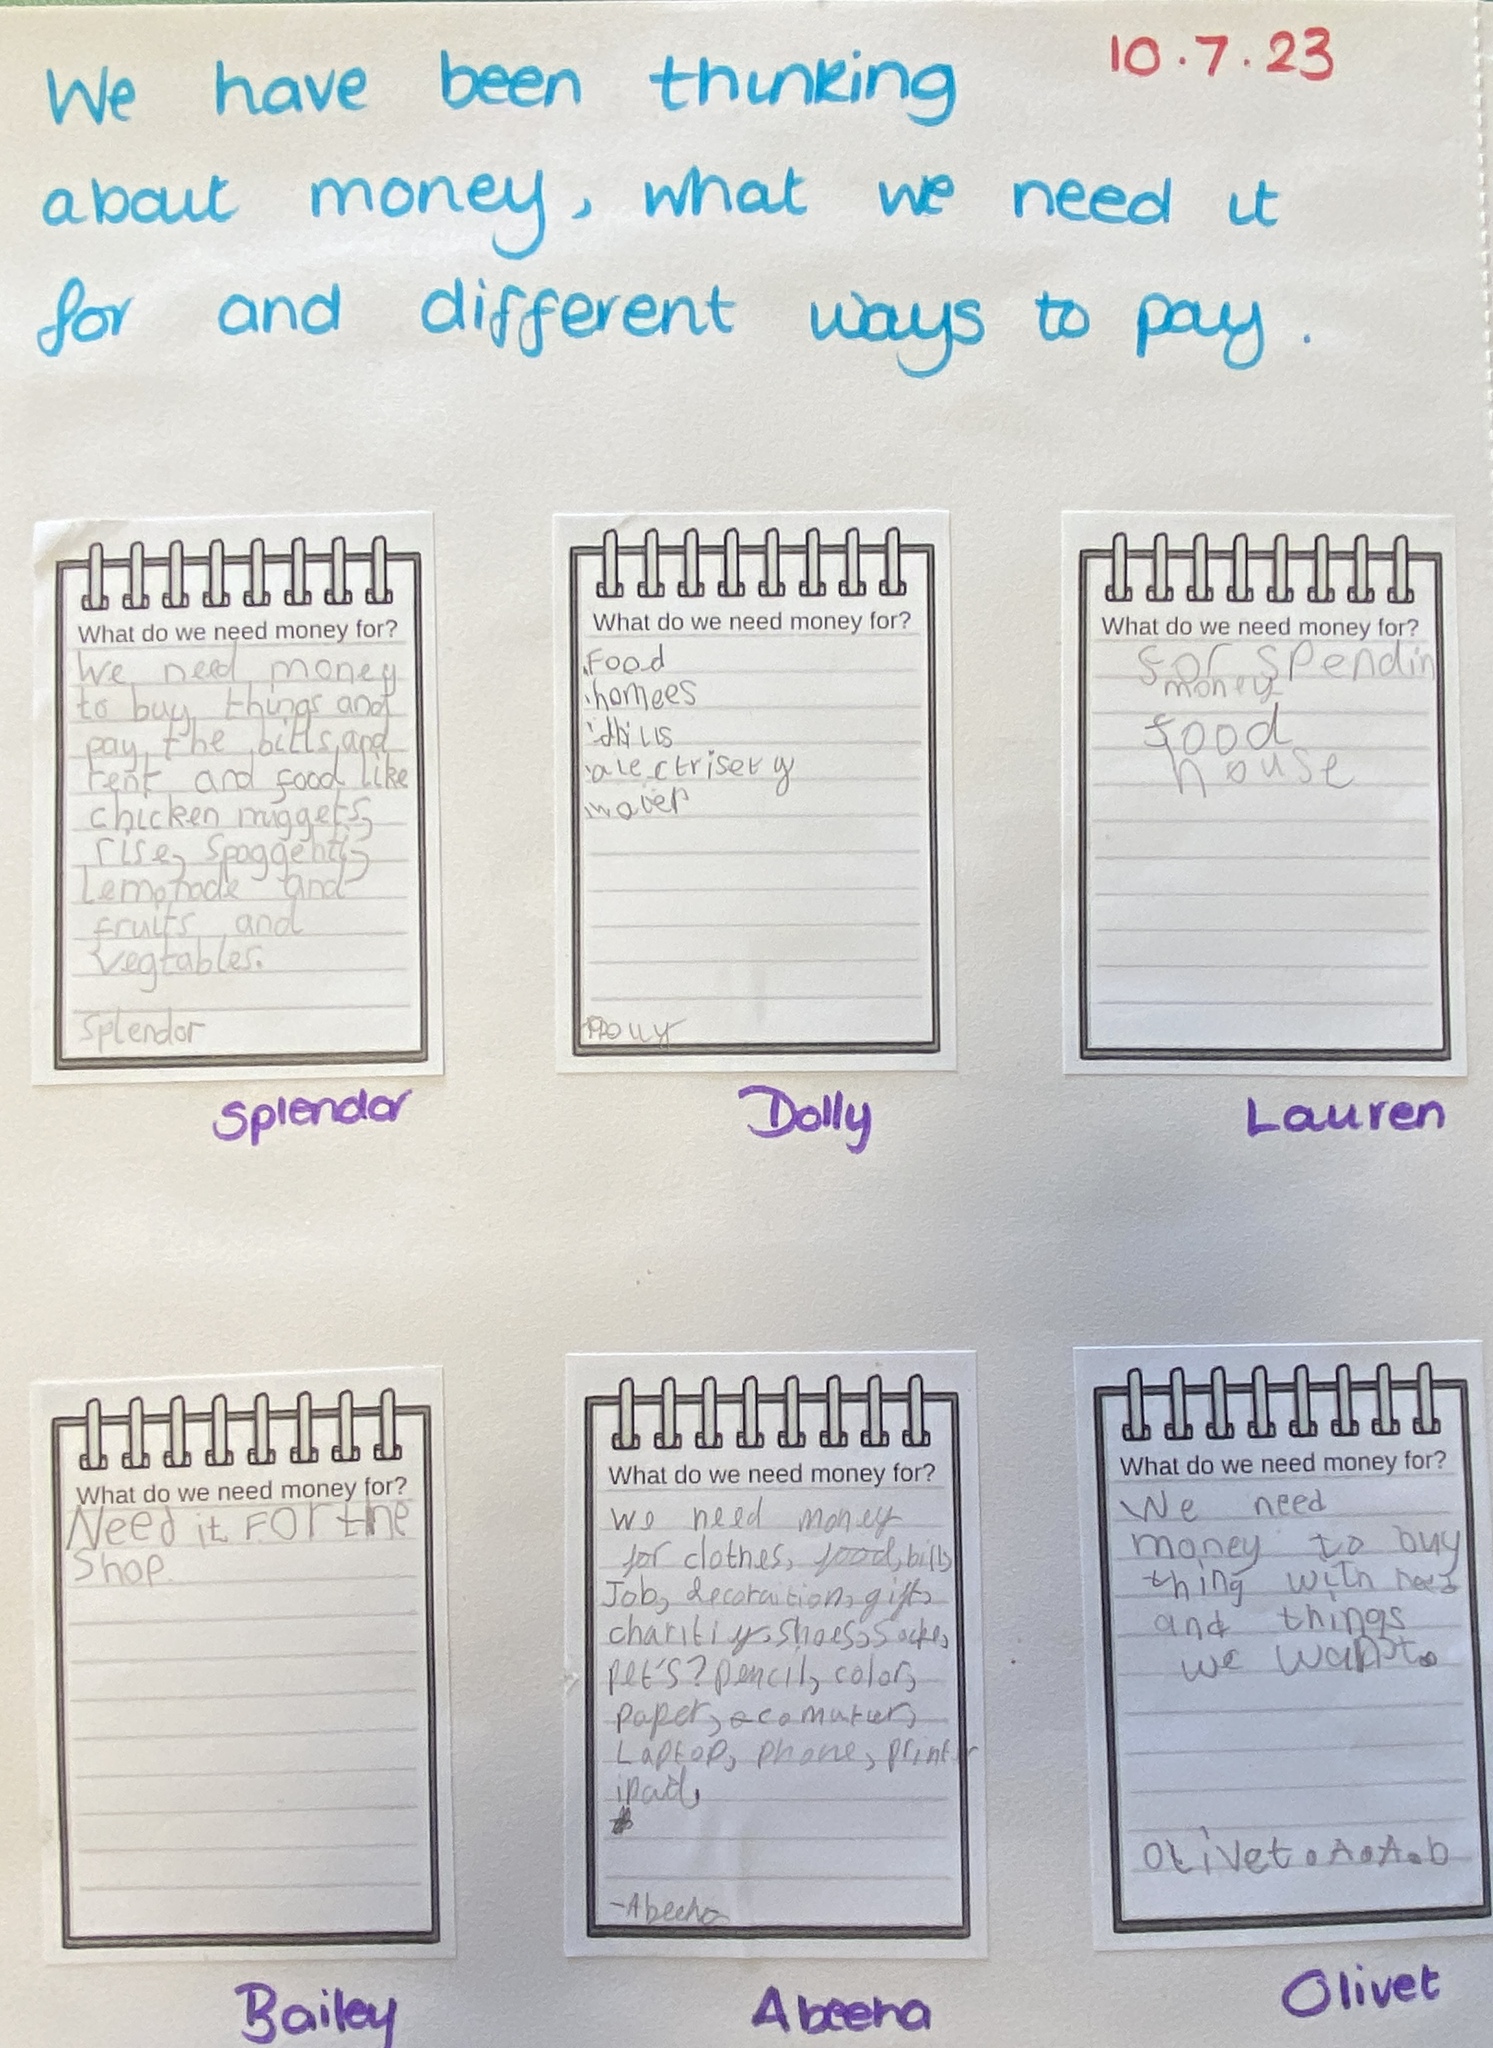 10.7.23
We have been thinking
about money, what we need it
for and different ways to pay.
What do we need money for?
We need money
to buy things and
pay the bills and
rent and food like
chicken nuggets,
rise, Spaggehti,
Lemonade and
fruits and
vegtables.
Splendor
Splendor
What do we need money for?
Food
homees
alectrisety
Dolly
What do we need money for?
for spendin
money
food
house
Lauren
What do we need money for?
Need it FOr the
Shop.
Bailey
What do we need money for?
we need money
for clothes, food, bills
Job, decoraition, gift,
charitiy, Shoes, Socke,
pet's? pencil, color,
paper,
Laptop, phone, printer
ipad,
-Abeena
Abeena
What do we need money for?
We need
money to buy
thing with need
and things
we want.
Olivet.A.A.b
Olivet